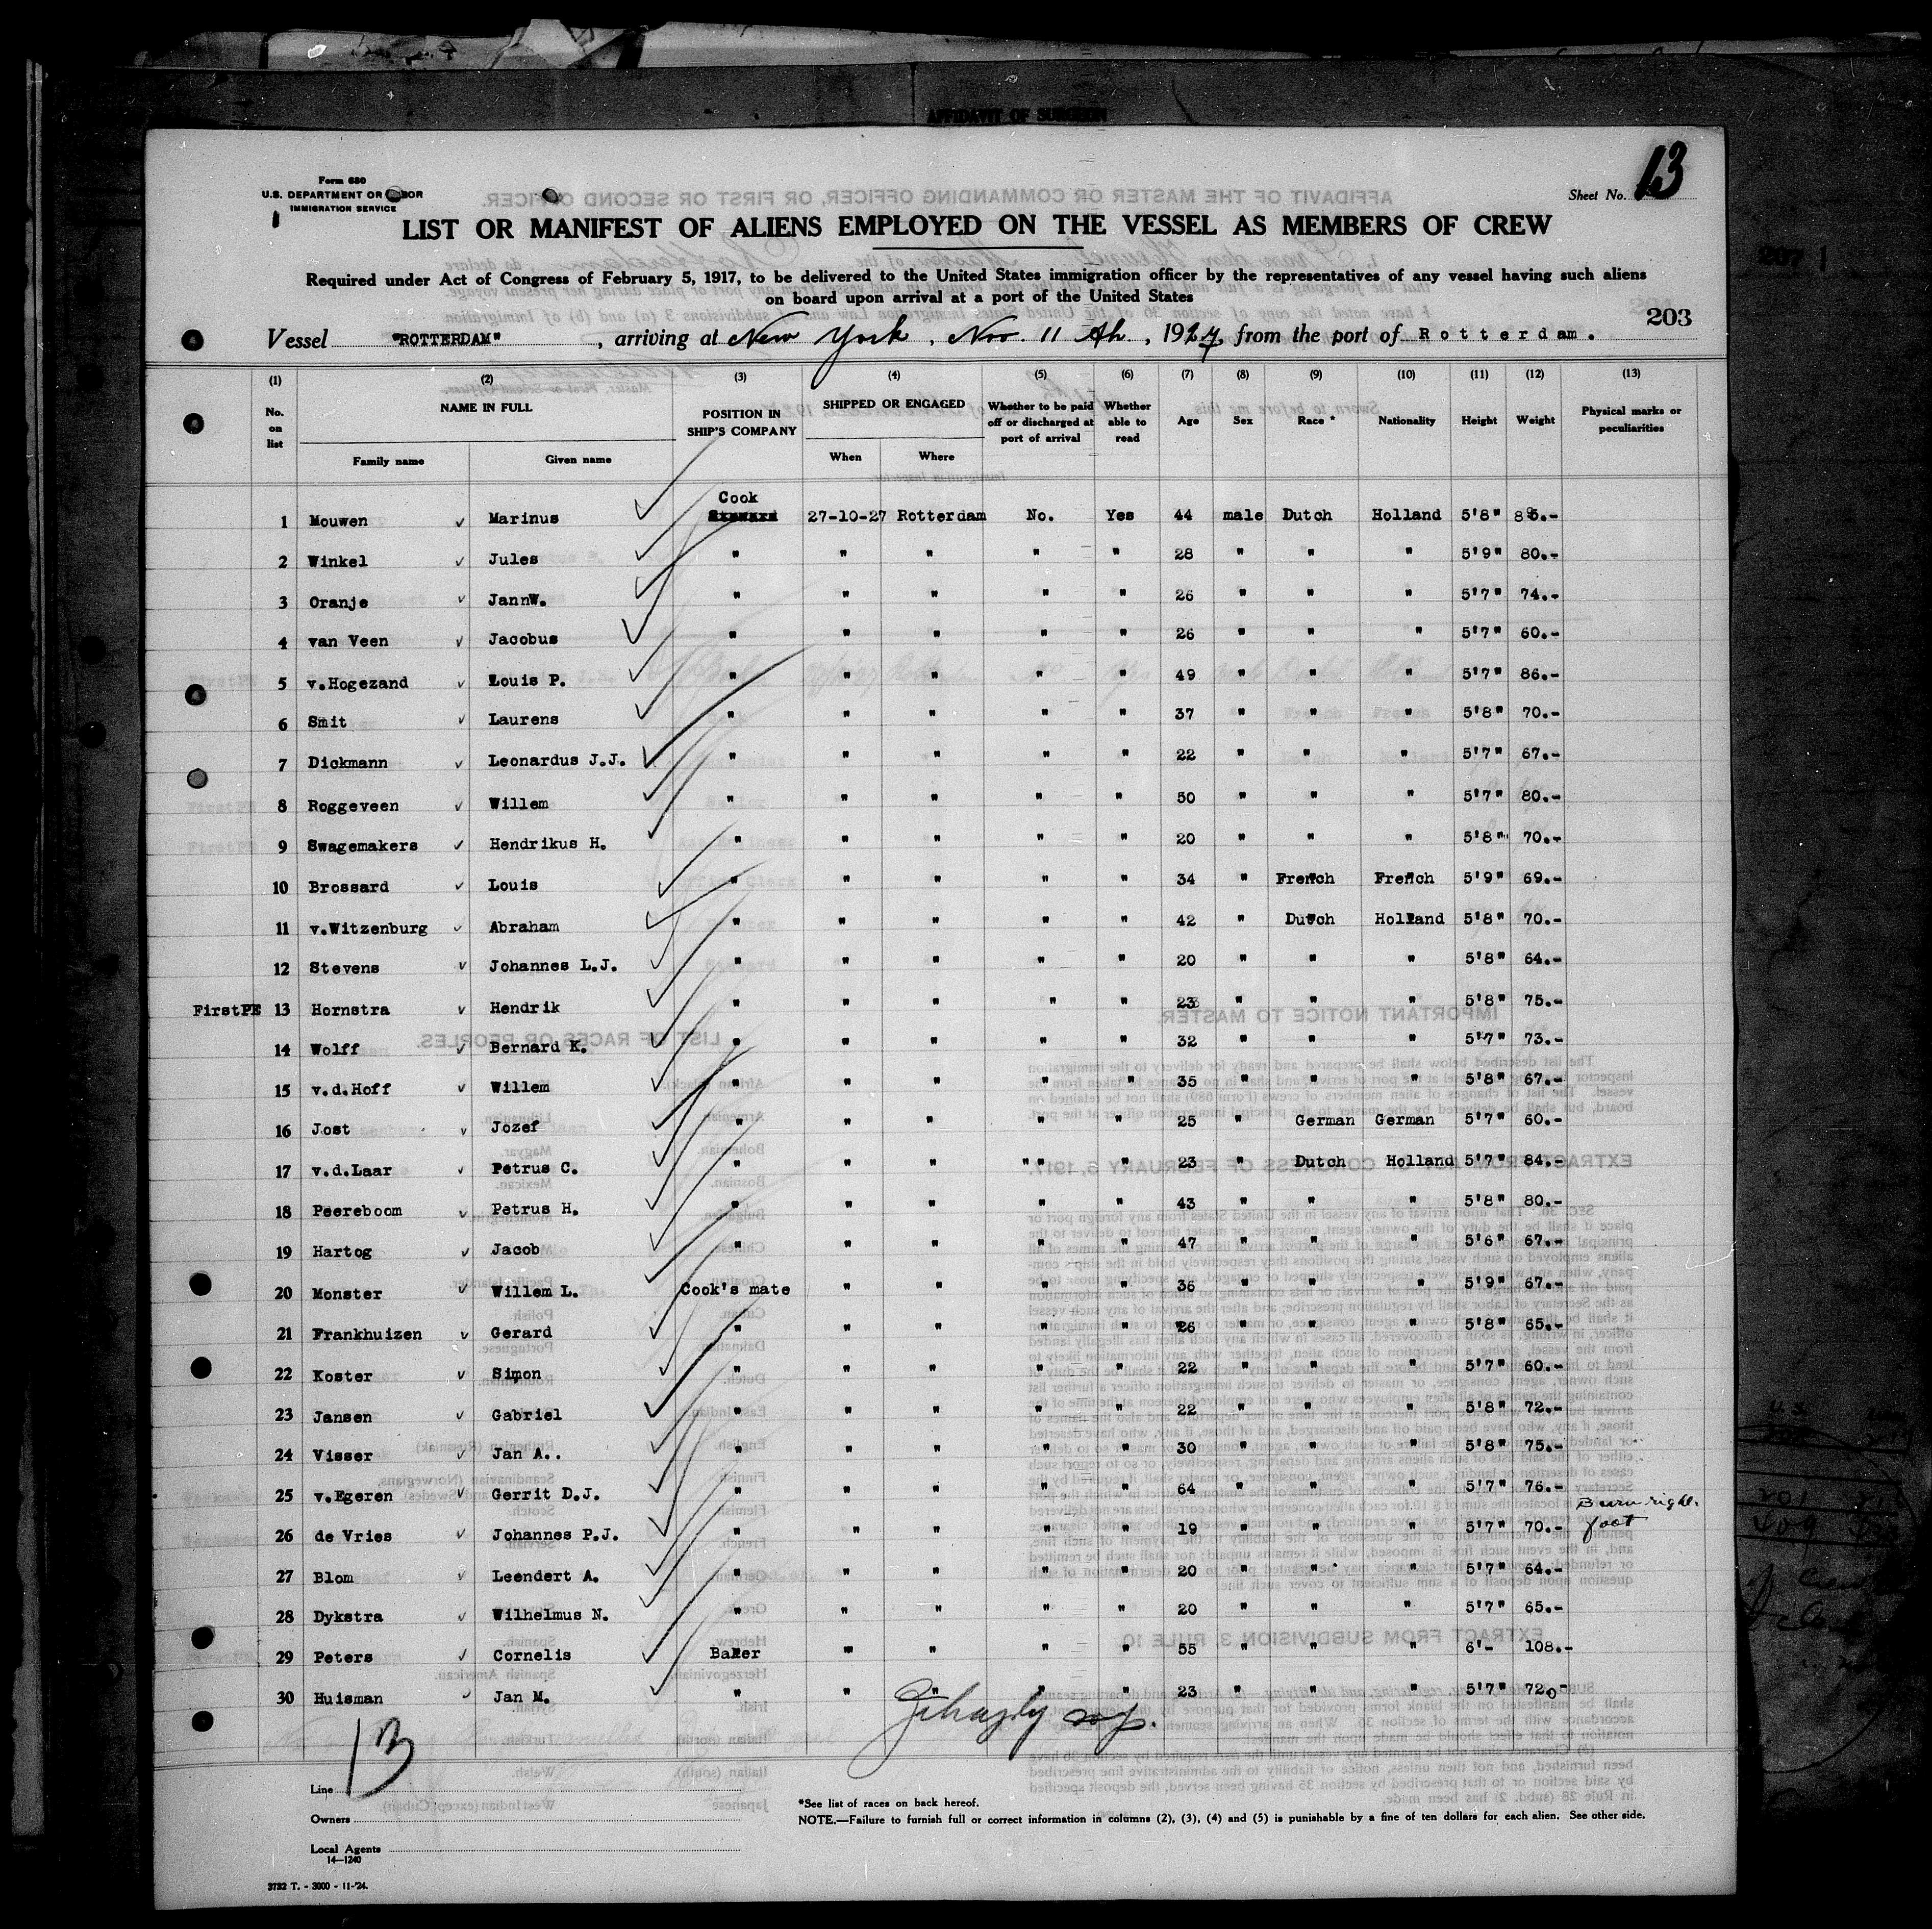 AFFIDAVIT OF SURGEON
Form 680
U.S. DEPARTMENT OF LABOR
IMMIGRATION SERVICE
Sheet No. 13
LIST OR MANIFEST OF ALIENS EMPLOYED ON THE VESSEL AS MEMBERS OF CREW
Required under Act of Congress of February 5, 1917, to be delivered to the United States immigration officer by the representatives of any vessel having such aliens
on board upon arrival at a port of the United States
203
Vessel "ROTTERDAM", arriving at New York, Nov. 11th, 1927, from the port of Rotterdam.
(1) (2) (3) (4) (5) (6) (7) (8) (9) (10) (11) (12) (13)
No. on list NAME IN FULL Family name Given name POSITION IN SHIP'S COMPANY SHIPPED OR ENGAGED When Where Whether to be paid off or discharged at port of arrival Whether able to read Age Sex Race * Nationality Height Weight Physical marks or peculiarities
1 Mouwen Marinus Cook 27-10-27 Rotterdam No. Yes 44 male Dutch Holland 5'8" 85.-
2 Winkel Jules " " " " " 28 " " " 5'9" 80.-
3 Oranje JannW. " " " " " 26 " " " 5'7" 74.-
4 van Veen Jacobus " " " " " 26 " " " 5'7" 60.-
5 v.Hogezand Louis P. " " " " " 49 " " " 5'7" 86.-
6 Smit Laurens " " " " " 37 " " " 5'8" 70.-
7 Dickmann Leonardus J.J. " " " " " 22 " " " 5'7" 67.-
8 Roggeveen Willem " " " " " 50 " " " 5'7" 80.-
9 Swagemakers Hendrikus H. " " " " " 20 " " " 5'8" 70.-
10 Brossard Louis " " " " " 34 " French French 5'9" 69.-
11 v.Witzenburg Abraham " " " " " 42 " Dutch Holland 5'8" 70.-
12 Stevens Johannes L.J. " " " " " 20 " " " 5'8" 64.-
FirstPE 13 Hornstra Hendrik " " " " " 23 " " " 5'8" 75.-
14 Wolff Bernard K. " " " " " 32 " " " 5'7" 73.-
15 v.d.Hoff Willem " " " " " 35 " " " 5'8" 67.-
16 Jost Jozef " " " " " 25 " German German 5'7" 60.-
17 v.d.Laar Petrus C. " " " "" " 23 " Dutch Holland 5'7" 84.-
18 Peereboom Petrus H. " " " " " 43 " " " 5'8" 80.-
19 Hartog Jacob " " " " " 47 " " " 5'6" 67.-
20 Monster Willem L. Cook's mate " " " " 36 " " " 5'9" 67.-
21 Frankhuizen Gerard " " " " " 26 " " " 5'8" 65.-
22 Koster Simon " " " " " 22 " " " 5'7" 60.-
23 Jansen Gabriel " " " " " 22 " " " 5'8" 72.-
24 Visser Jan A.. " " " " " 30 " " " 5'8" 75.-
25 v.Egeren Gerrit D.J. " " " " " 64 " " " 5'7" 76.-
26 de Vries Johannes P.J. " " " " " 19 " " " 5'7" 70.- Burn right foot
27 Blom Leendert A. " " " " " 20 " " " 5'7" 64.-
28 Dykstra Wilhelmus N. " " " " " 20 " " " 5'7" 65.-
29 Peters Cornelis Baker " " " " 55 " " " 6'- 108.-
30 Huisman Jan M. " " " " " 23 " " " 5'7" 72.-
13
Line
Owners
Local Agents
14-1240
*See list of races on back hereof.
NOTE.—Failure to furnish full or correct information in columns (2), (3), (4) and (5) is punishable by a fine of ten dollars for each alien. See other side.
3732 T. - 3000 - 11-'24.